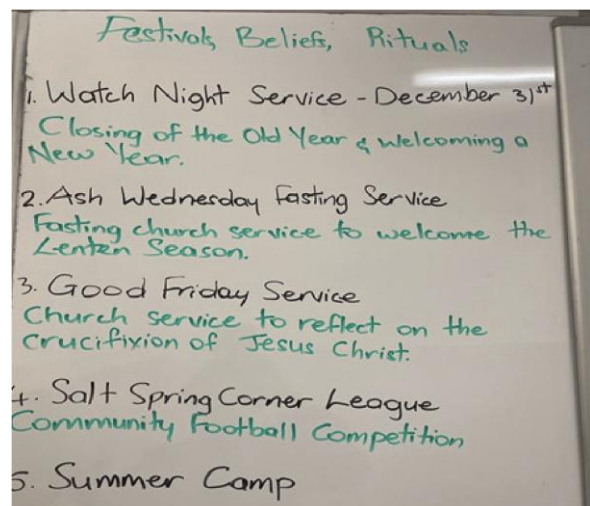 Festivals, Beliefs, Rituals
1. Watch Night Service - December 31st
Closing of the Old Year & Welcoming a
New Year.
2. Ash Wednesday Fasting Service
Fasting church service to welcome the
Lenten Season.
3. Good Friday Service
Church service to reflect on the
crucifixion of Jesus Christ.
4. Salt Spring Corner League
Community Football Competition
5. Summer Camp